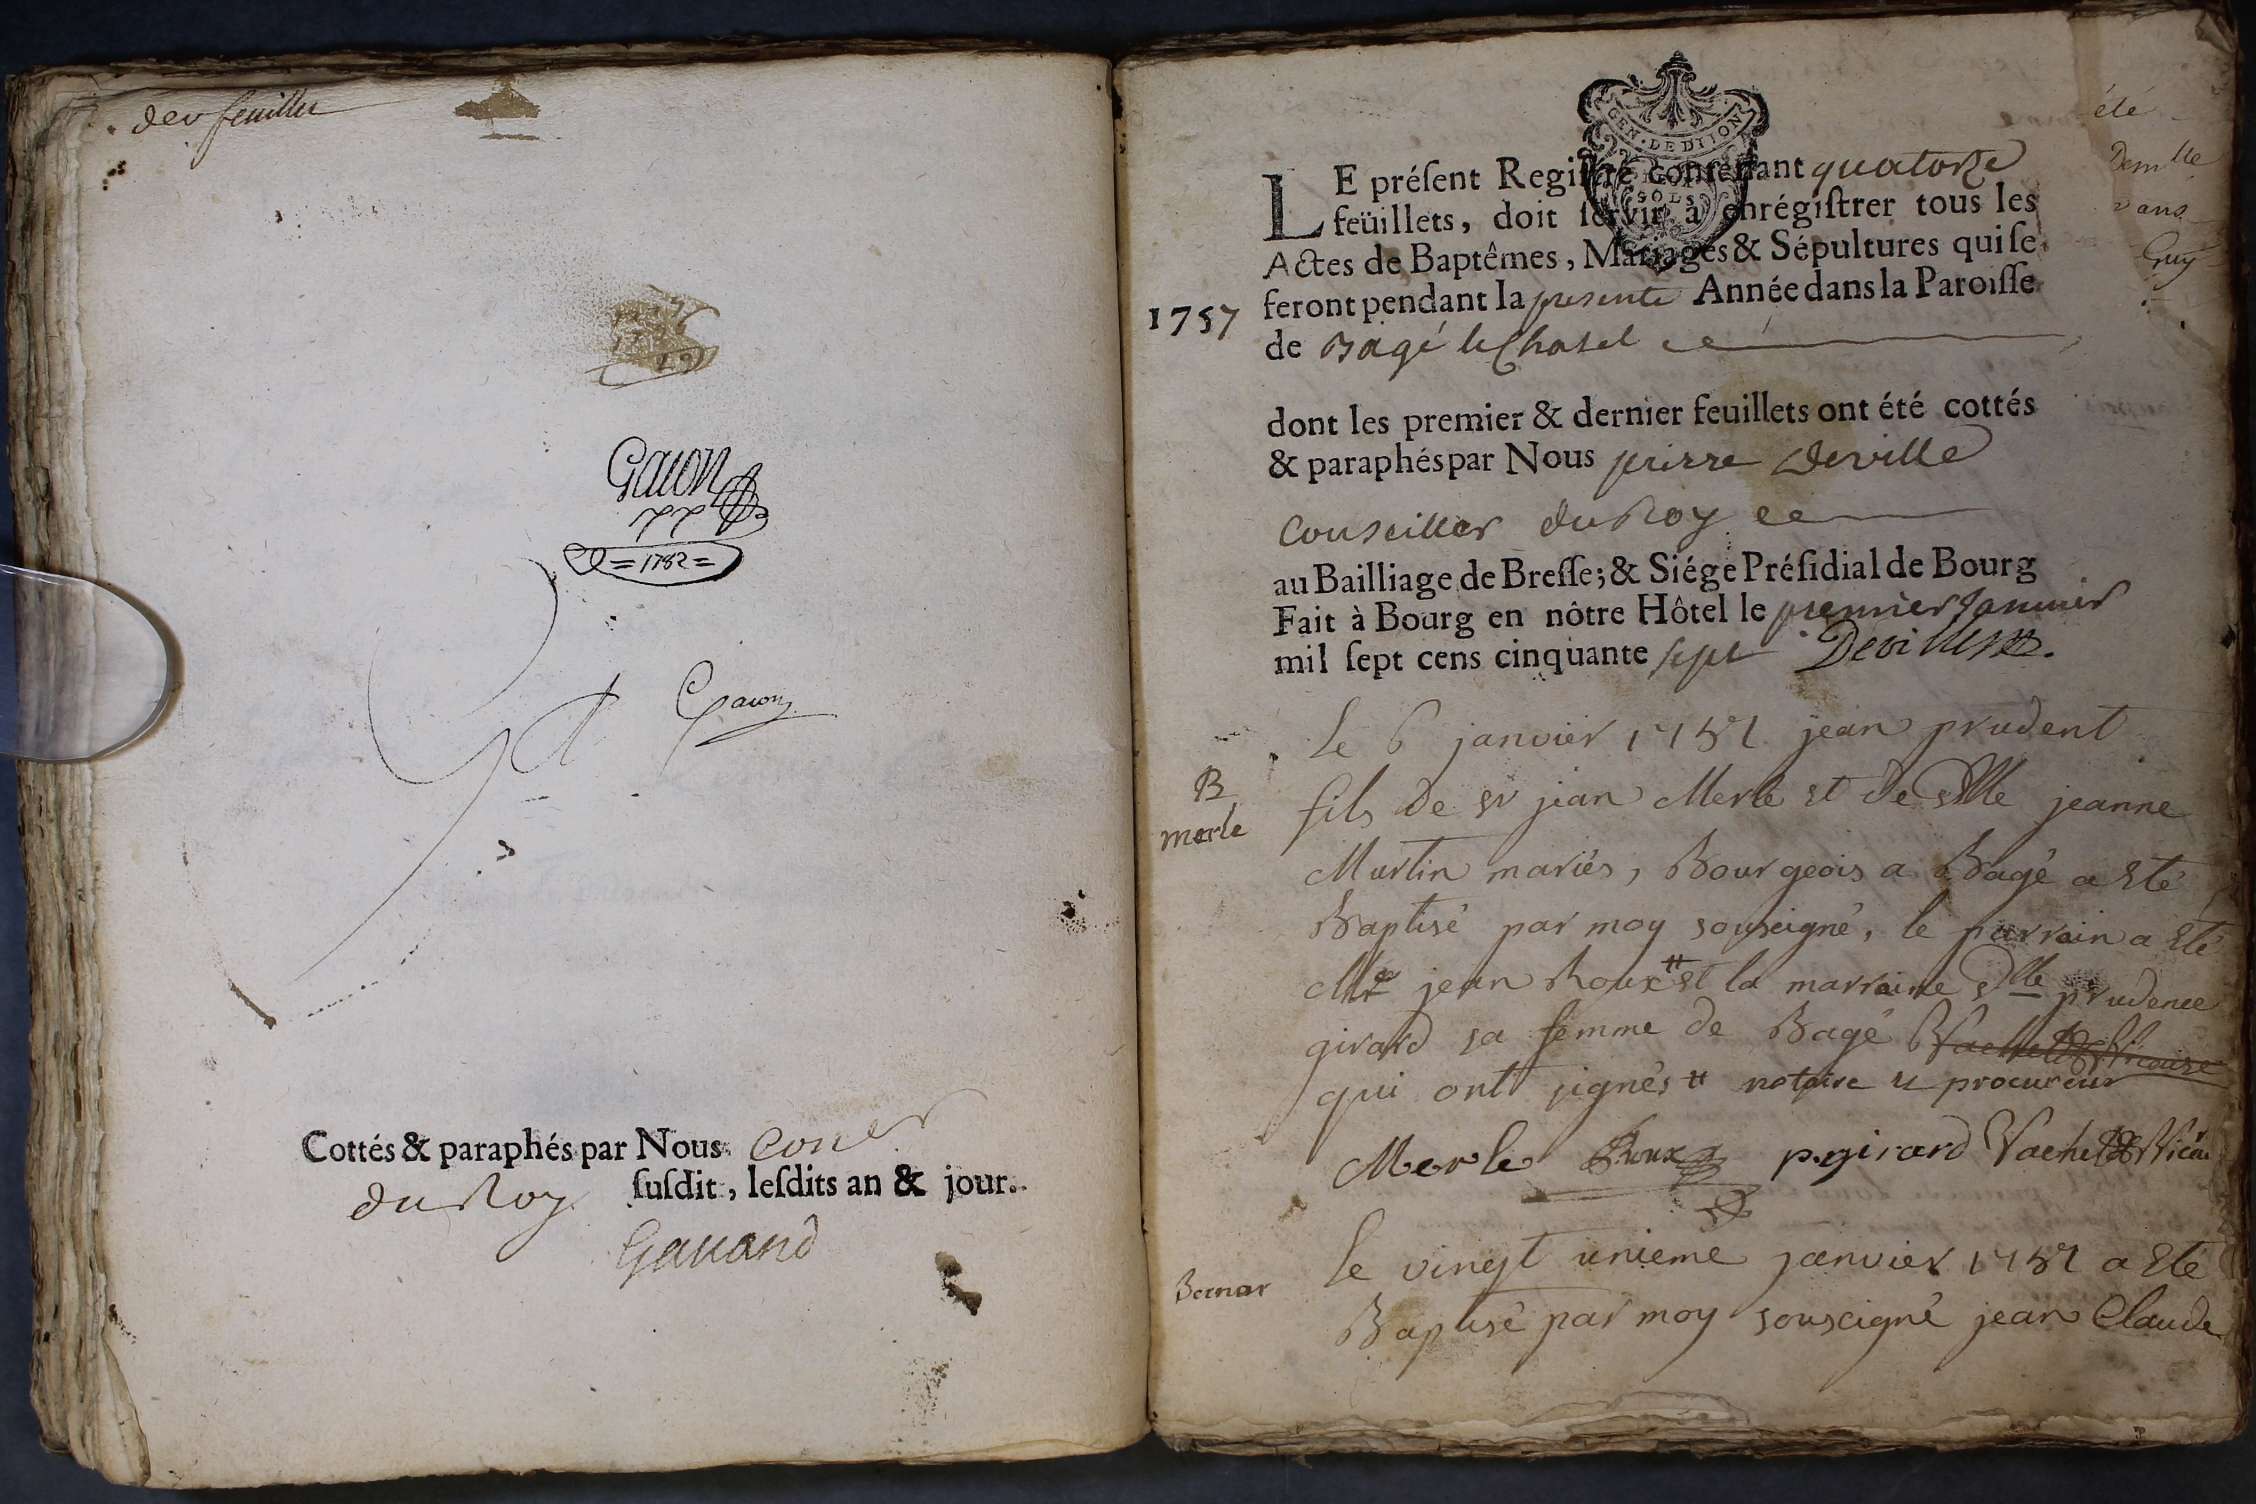 feuillu
Gacon
= 1782 =
Gacon
Cottés & paraphés par Nous Coner
du Roy susdit, lesdits an & jour.
Gauand
GEN. DE DIJON
SOLS
LE présent Registre contenant quatorze
feüillets, doit servir à enrégistrer tous les
Actes de Baptêmes, Mariages & Sépultures qui se
1757 feront pendant la presente Année dans la Paroisse
de Bagé le Chatel
dont les premier & dernier feuillets ont été cottés
& paraphés par Nous pierre Deville
Conseiller du Roy
au Bailliage de Bresse; & Siége Présidial de Bourg
Fait à Bourg en nôtre Hôtel le premier Janvier
mil sept cens cinquante sept Deville
été
Demlle
Guy
B
merle
le 6 janvier 1757 jean prudent
fils de sr jean Merle et de dlle jeanne
Martin mariés, Bourgeois a Bagé a eté
Baptisé par moy souseigné, le parrain a eté
Mr jean Roux # et la marraine dlle prudence
girard sa femme de Bagé Vachet Vicaire
qui ont signés # notaire et procureur
Merle Roux p. girard Vachet Vicai
Bernar
le vingt unieme janvier 1757 a eté
Baptisé par moy souscigné jean Claude